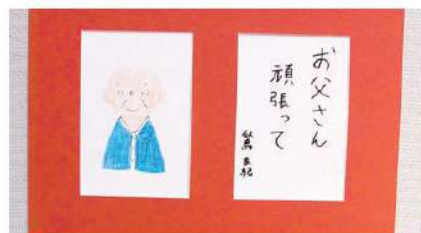 お父さん
頑張って